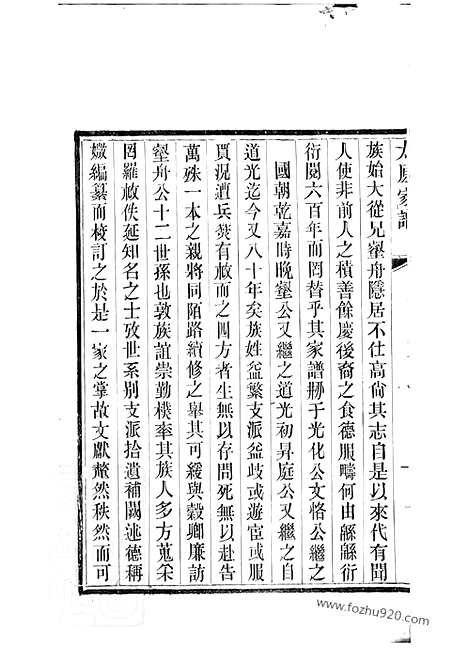 太原家譜
族始大從兄壑舟隱居不仕高尚其志自是以來代有聞
人使非前人之積善餘慶後裔之食德服疇何由緜緜衍
衍閱六百年而罔替乎其家譜刱于光化公文恪公繼之
國朝乾嘉時晚壑公又繼之道光初昇庭公又繼之自
道光迄今又八十年矣族姓益繁支派益歧或遊宦或服
賈況遭兵燹有散而之四方者生無以存問死無以赴告
萬殊一本之親將同陌路續修之舉其可緩與穀卿廉訪
壑舟公十二世孫也敦族誼崇勤樸率其族人多方蒐采
网羅散佚延知名之士攷世系别支派拾遺補闕述德稱
媺編纂而校訂之於是一家之掌故文獻犛然秩然而可
www.fozhu920.com